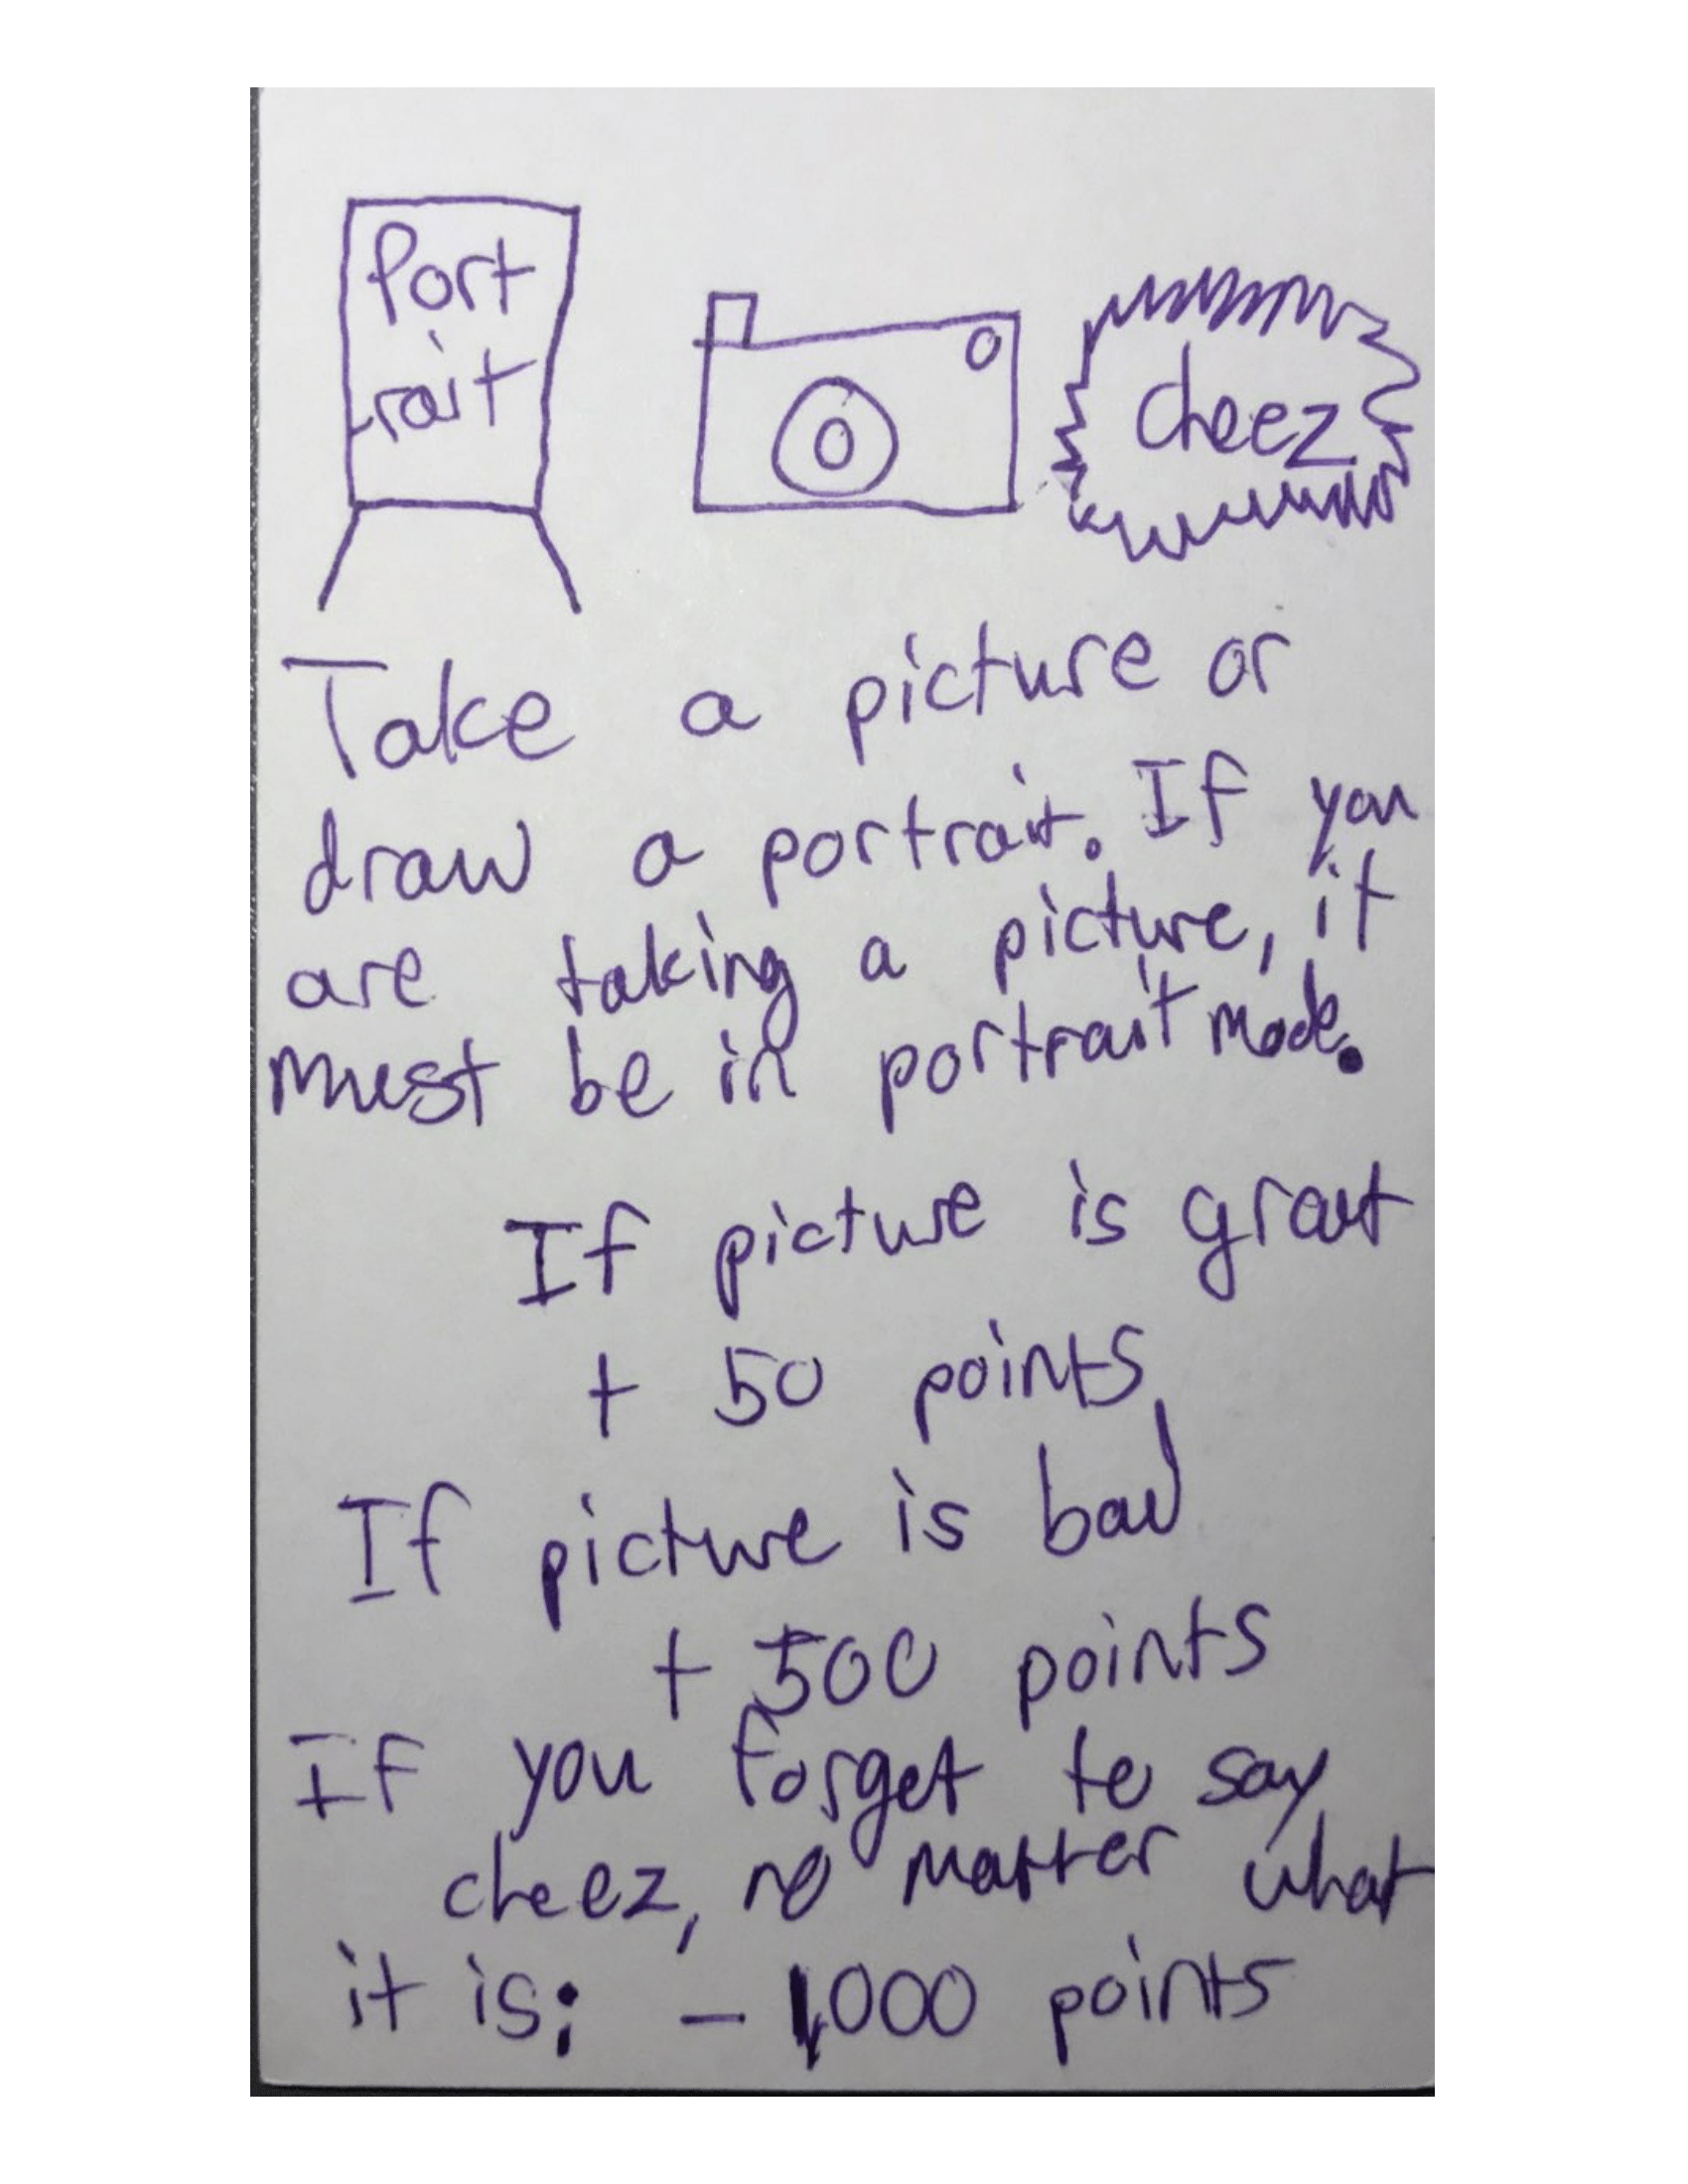 Port
rait
cheez
Take a picture or
draw a portrait. If you
are taking a picture, it
must be in portrait mode.
If picture is graet
+ 50 points
If picture is bad
+ 500 points
If you forget to say
cheez, no matter what
it is: - 1,000 points